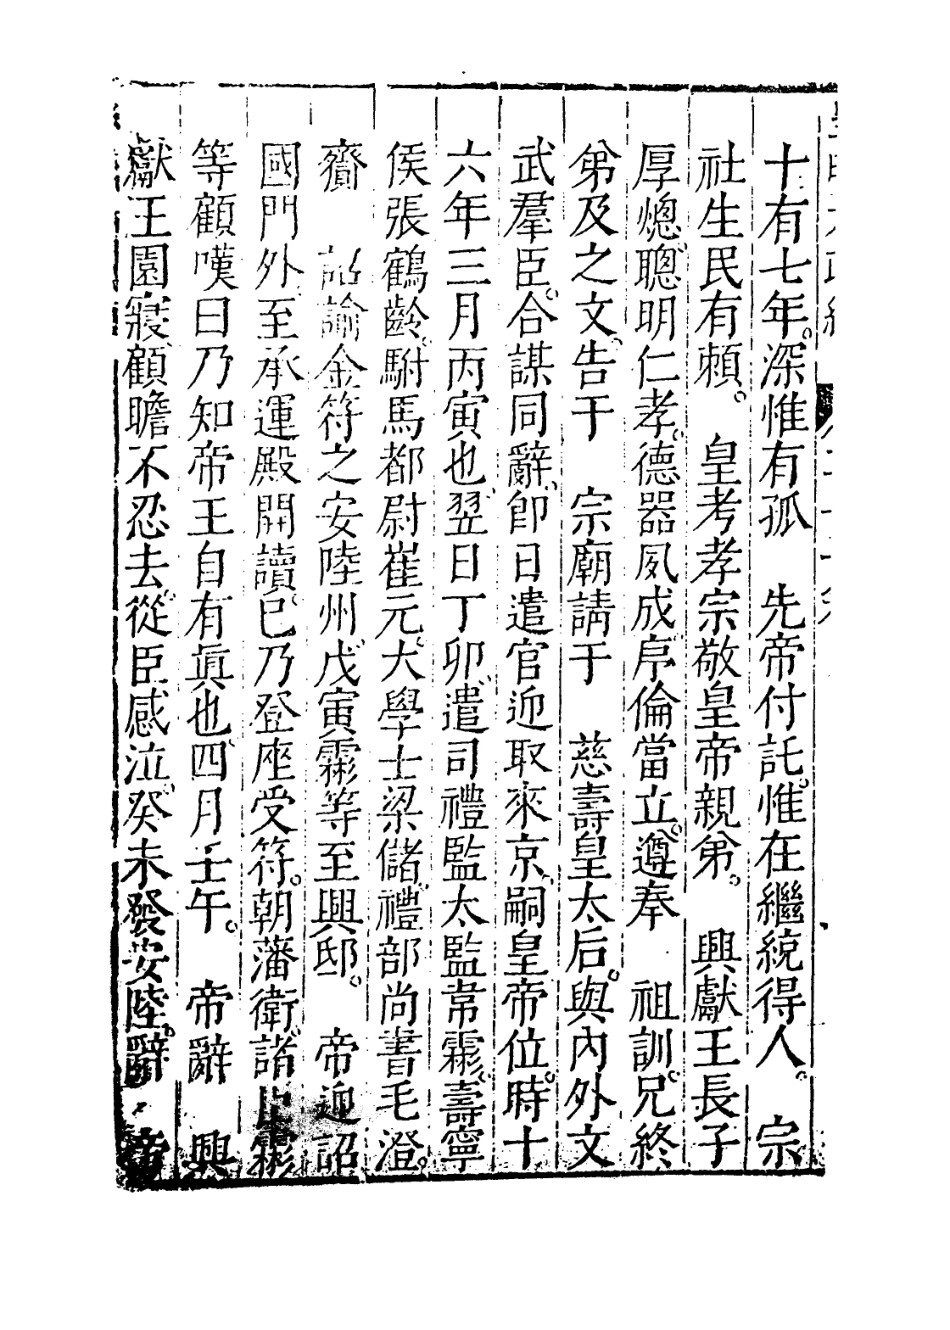 十有七年。深惟有孤　先帝付託。惟在繼統得人。　宗
社生民有賴。　皇考孝宗敬皇帝親弟。　興獻王長子
厚熜。聰明仁孝。德器夙成。序倫當立。遵奉　祖訓。兄終
弟及之文。告于　宗廟。請于　慈壽皇太后。與內外文
武羣臣。合謀同辭。卽日遣官迎取來京。嗣皇帝位。時十
六年三月丙寅也。翌日丁卯。遣司禮監太監韋霦。壽寧
侯張鶴齡。駙馬都尉崔元。大學士梁儲。禮部尚書毛澄。
齎　詔諭金符之安陸州。戊寅霦等至興邸。　帝迎詔
國門外。至承運殿開讀。已乃登座受符。朝藩衛諸臣。霦
等顧嘆曰。乃知帝王自有眞也。四月壬午。　帝辭　興
獻王園寢。顧瞻不忍去。從臣感泣。癸未發安陸。辭